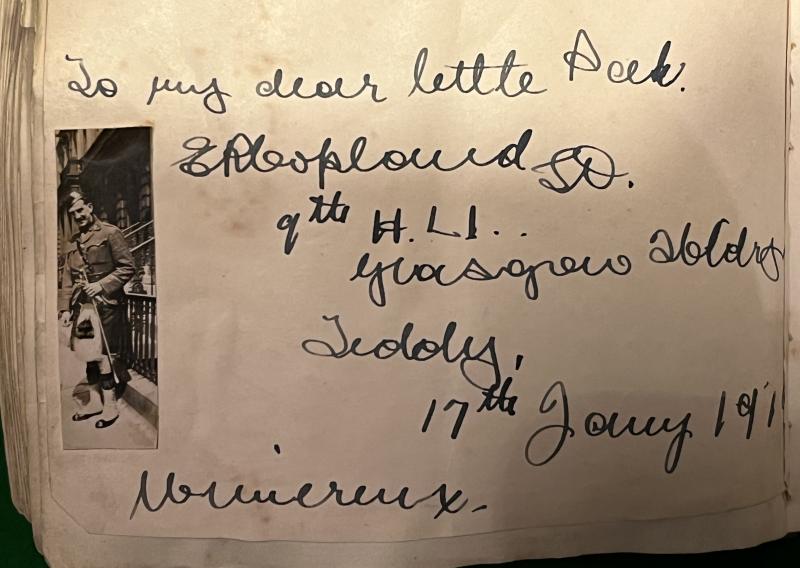 To my dear little Peek.
E R Copland SD.
9th H.L.I..
Glasgow Hldrs
Teddy,
17th Jany 191
Wimereux.